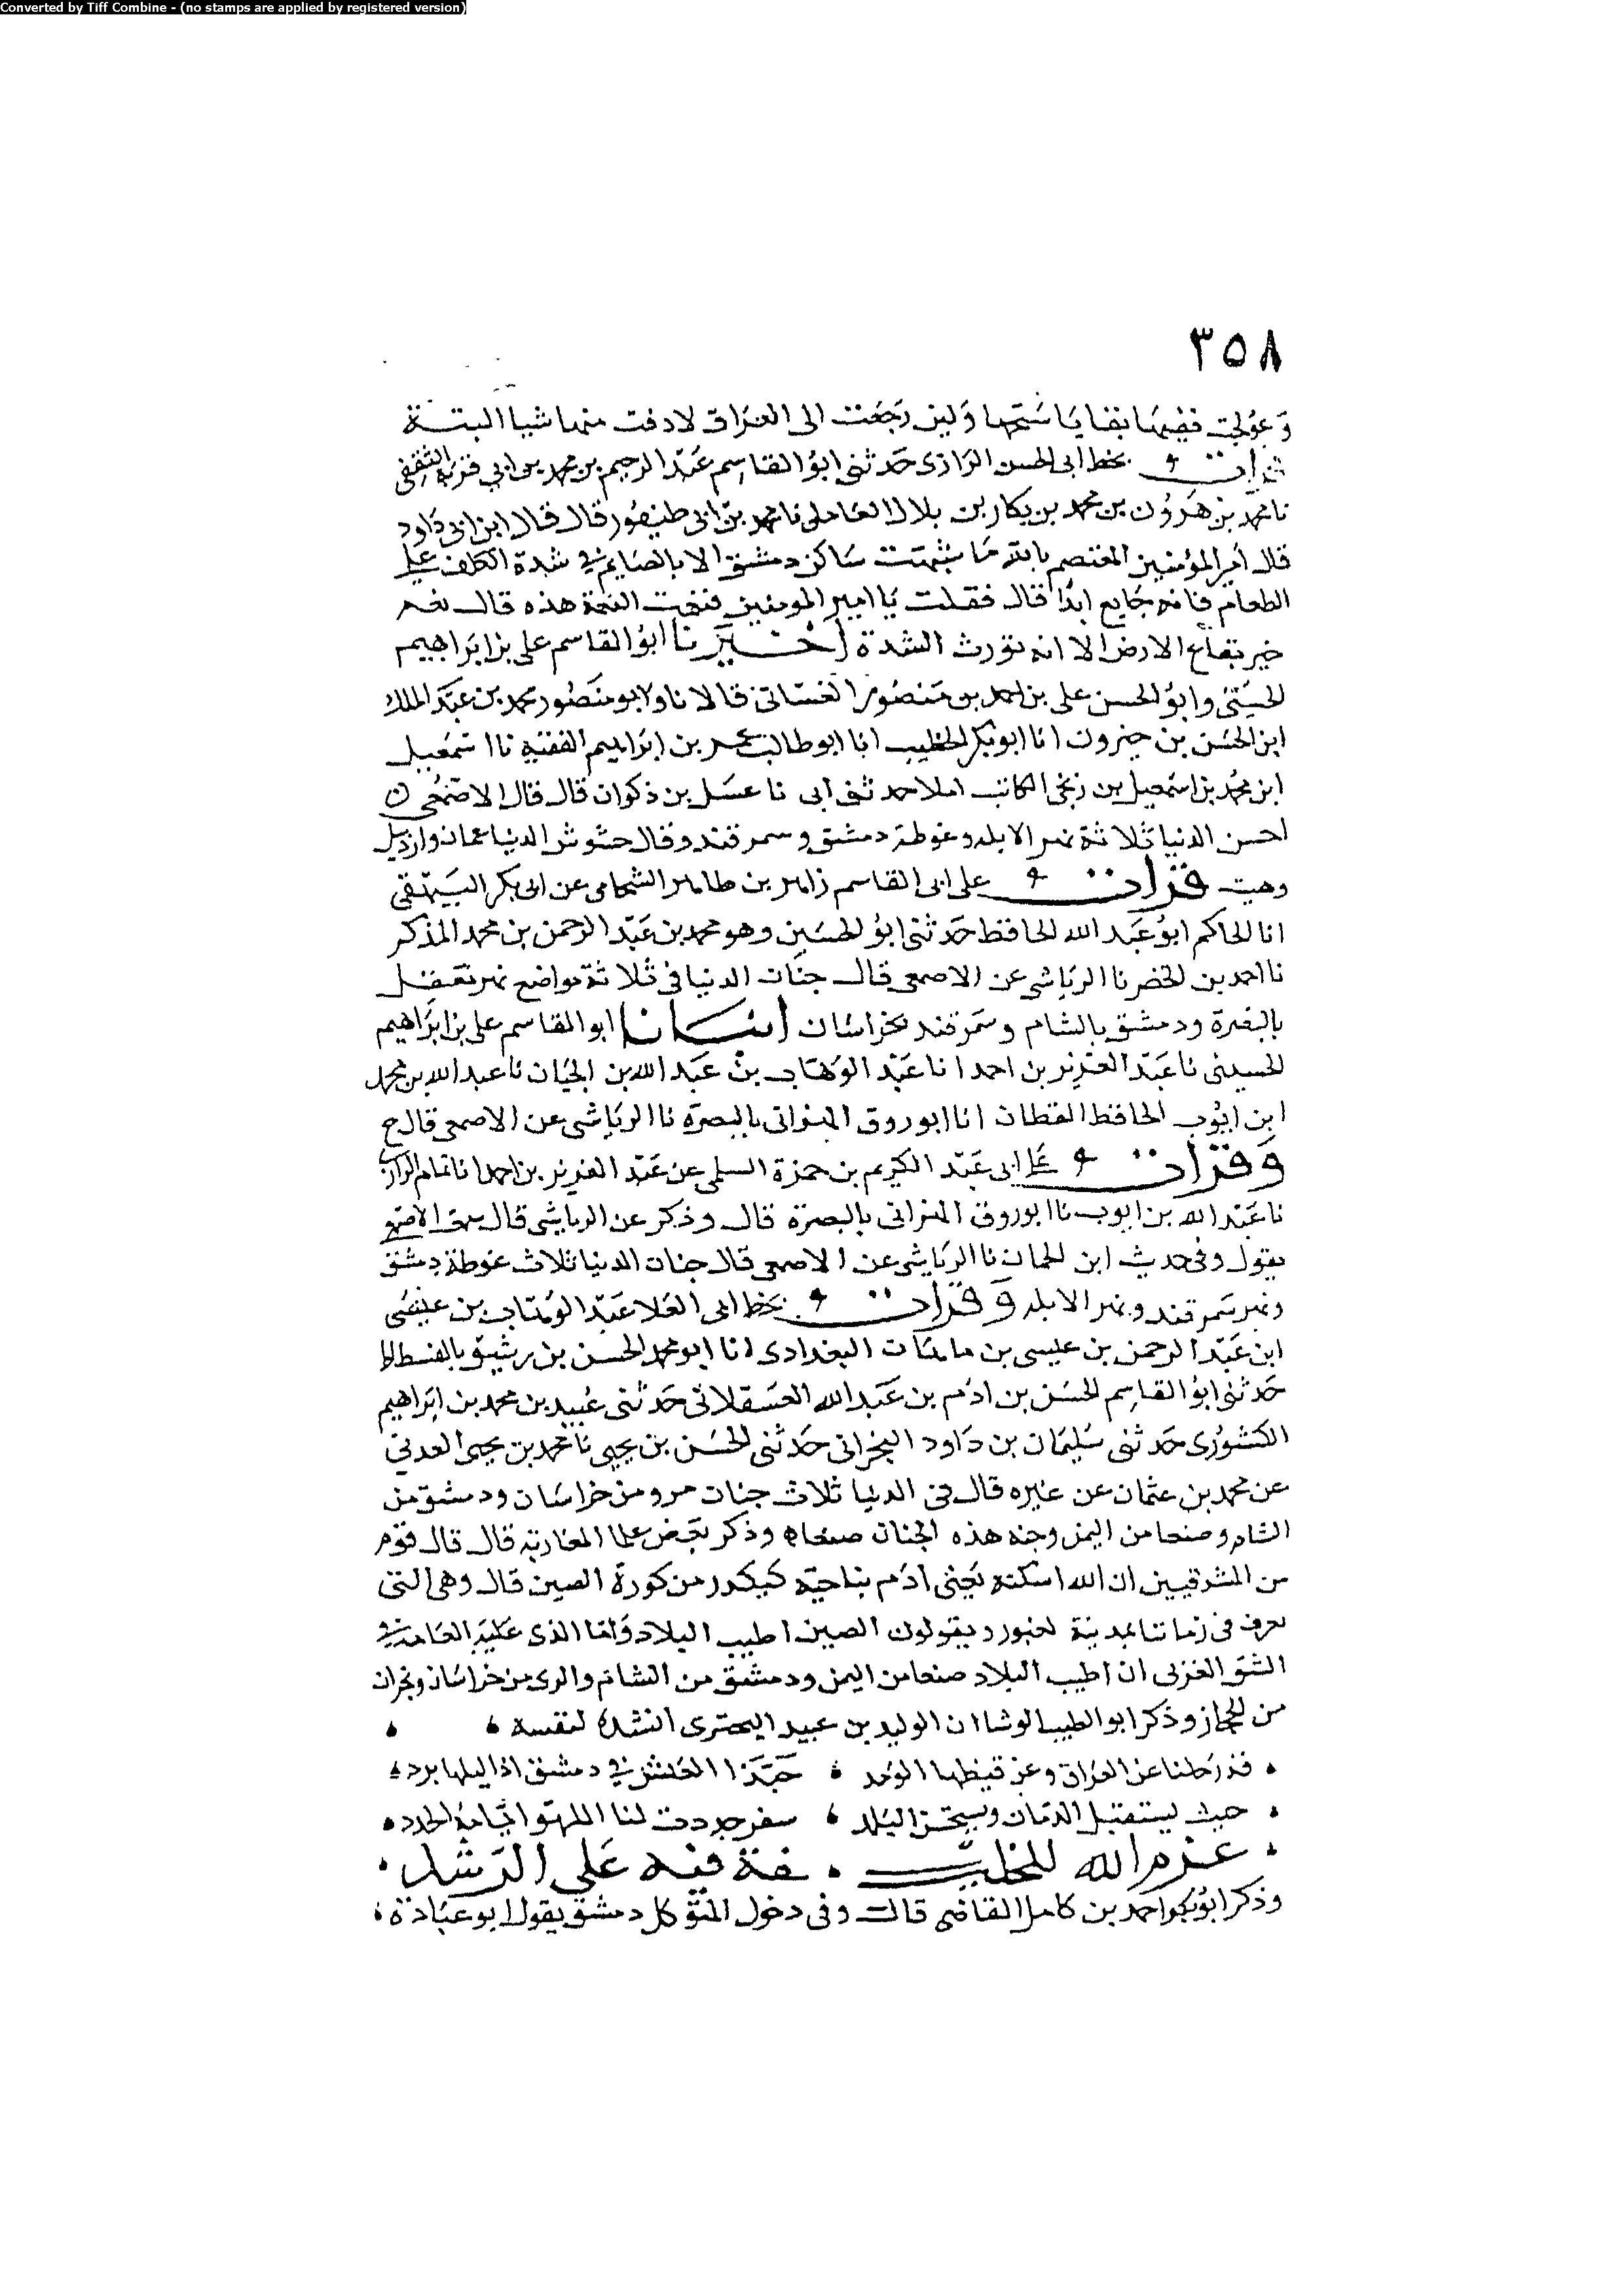 Converted by Tiff Combine - (no stamps are applied by registered version)
٣٥٨
وعولجت بقايا سمها ولين رجعت الى العراق لا دفت منها شيا البتة
قرات بخط ابى الحسن الرازى حدثنى ابو القاسم عبد الرحيم بن محمد بن ابى قرة الثقفى
نا محمد بن هرون بن محمد بن بكار بن بلال العاملى نا محمد بن ابى طيفور قال قال ابن ابى داود
قال امير المؤمنين المعتصم بالله ما شبهت ساكن دمشق الا بالصايم فى شدة الكلف على
الطعام فانه جايع ابدا قال فقلت يا امير المومنين هذه قال نعم
خير بقاع الارض الا انه تورث الشدة اخبرنا ابو القاسم على بن ابراهيم
الحسينى وابو الحسن على بن احمد بن منصور الغسانى قالا نا وابو منصور محمد بن عبد الملك
ابن الحسن بن خيرون انا ابو بكر الخطيب انا ابو طالب عمر بن ابراهيم الفقيه نا اسمعيل
ابن محمد بن اسمعيل بن زنجى الكاتب املا حدثنى ابى نا عسل بن ذكوان قال قال الاصمعى
احسن الدنيا ثلاثة نهر الابله وغوطة دمشق وسمرقند وقال حشوش الدنيا عمان واردبيل
وهيت قرات على ابى القاسم زاهر بن طاهر الشحامى عن ابى بكر البيهقى
انا الحاكم ابو عبد الله الحافظ حدثنى ابو الحسين وهو محمد بن عبد الرحمن بن محمد المذكر
نا احمد بن الخضر نا الرياشى عن الاصمعى قال جنات الدنيا فى ثلاثة مواضع نهر معقل
بالبصرة ودمشق بالشام وسمرقند بخراسان انبانا ابو القاسم على بن ابراهيم
الحسينى نا عبد العزيز بن احمد انا عبد الوهاب بن عبد الله بن الجبان نا عبد الله بن محمد
ابن ايوب الحافظ القطان انا ابو روق الهزانى بالبصرة نا الرياشى عن الاصمعى قال ح
وقرات على ابى عبد الكريم بن حمزة السلمى عن عبد العزيز بن احمد انا تمام الرازى
نا عبد الله بن ايوب نا ابو روق الهزانى بالبصرة قال وذكر عن الرياشى قال سمعت الاصمعى
يقول وفى حديث ابن الجبان نا الرياشى عن الاصمعى قال جنات الدنيا ثلاث غوطة دمشق
ونهر سمرقند ونهر الابله وقرات بخط ابى العلا عبد الوهاب بن عيسى
ابن عبد الرحمن بن عيسى بن ماهان البغدادى انا ابو محمد الحسن بن رشيق بالفسطاط
حدثنى ابو القاسم الحسن بن ادم بن عبد الله العسقلانى حدثنى عبيد بن محمد بن ابراهيم
الكشورى حدثنى سليمان بن داود النجرانى حدثنى الحسن بن يحيى نا محمد بن يحيى العدنى
عن محمد بن عثمان عن غيره قال فى الدنيا ثلاث جنات مرو من خراسان ودمشق من
الشام وصنعا من اليمن وجنه هذه الجنان صنعاه وذكر بعض علما المغاربة قال قال قوم
من المشرقيين ان الله اسكنه يعنى ادم بناحية كيكدر من كورة الصين قال وهى التى
تعرف فى زماننا بمدينة ويقولون الصين اطيب البلاد واما الذى عليه العامة فى
الشق الغربى ان اطيب البلاد صنعا من اليمن ودمشق من الشام والرى من خراسان ونجران
من الحجاز وذكر ابو الطيب الوشا ان الوليد بن عبيد البحترى انشده لنفسه
قد رحلنا عن العراق وعن قيظها الومد حبذا العيش فى دمشق اذا ليلها برد
حيث يستقبل الزمان ويستحسن البلد سفر جددت لنا اللهو ايامه الجدد
عزم الله للخليفة فيه على الرشد
وذكر ابو بكر احمد بن كامل القاضى قال وفى دخول المتوكل دمشق يقول ابو عبادة